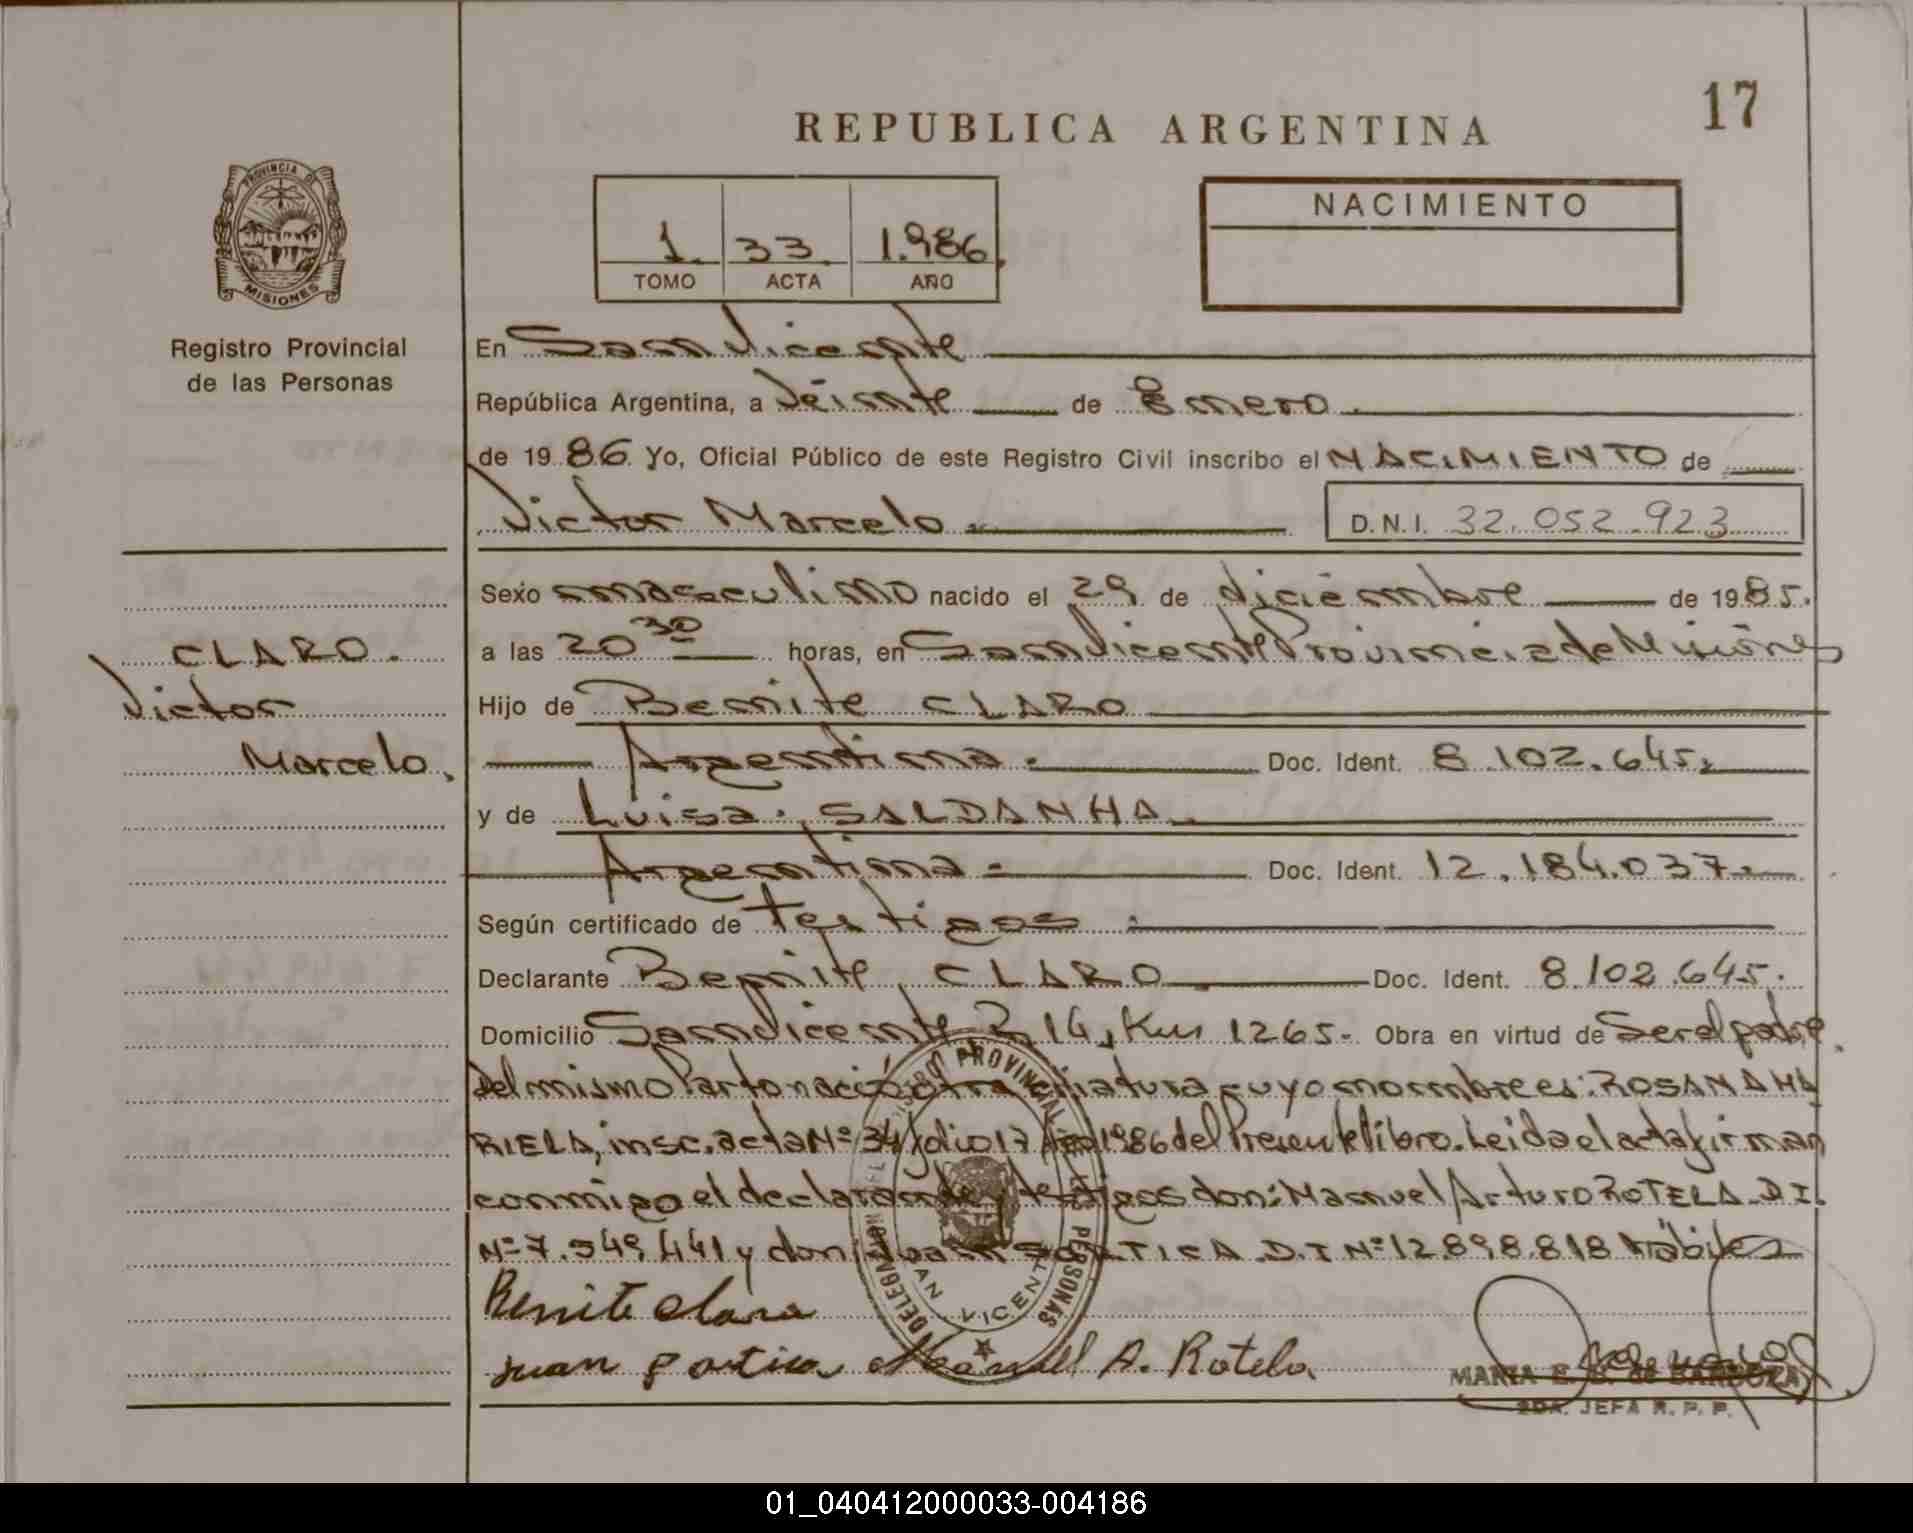 17
REPUBLICA ARGENTINA
PROVINCIA DE
MISIONES
Registro Provincial
de las Personas
1. 33. 1.986.
TOMO ACTA AÑO
NACIMIENTO
En San Vicente
República Argentina, a Veinte de Enero.
de 19 86 Yo, Oficial Público de este Registro Civil inscribo el NACIMIENTO de
Victor Marcelo.
D.N.I. 32.052.923
CLARO.
Victor
Marcelo.
Sexo masculino nacido el 29 de diciembre de 1985.
a las 20 30 horas, en San Vicente Provincia de Misiones
Hijo de Benite CLARO
Argentina. Doc. Ident. 8.102.645.
y de Luisa. SALDANHA
Argentina.- Doc. Ident. 12.184.037.
Según certificado de testigos.
Declarante Benite CLARO Doc. Ident. 8.102.645.
Domicilio San Vicente R 14, Km 1265.- Obra en virtud de Ser el padre.
Del mismo Parto nació otra criatura cuyo nombre es: ROSANA MA
RIELA, insc. acta Nº 34 folio 17 Año 1986 del Presente libro. Leida el acta firman
conmigo el declarante y testigos don: Manuel Arturo ROTELA D I.
Nº 7.549.441 y don: Juan GORTICA D.I Nº 12.898.818 hábiles
Benite Claro
Juan gortica Manuel A. Rotela
REGISTRO PROVINCIAL DE LAS PERSONAS
DELEGACION
SAN VICENTE
MARIA E. B. de BARBOZA
2DA. JEFA R. P. P.
01_040412000033-004186